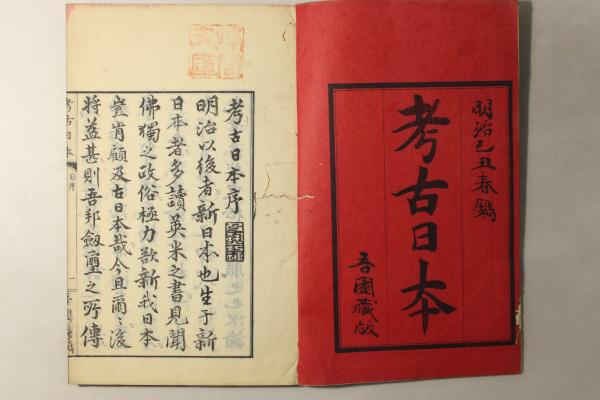 明治己丑春鐫
考古日本
吾園藏版
考古日本序
明治以後者新日本也生于新
日本者多讀英米之書見聞
佛獨之政俗極力欲新我日本
豈肯顧及古日本哉今且爾〻後
將益甚則吾邦劔璽之所傳
考古日本
自序
一